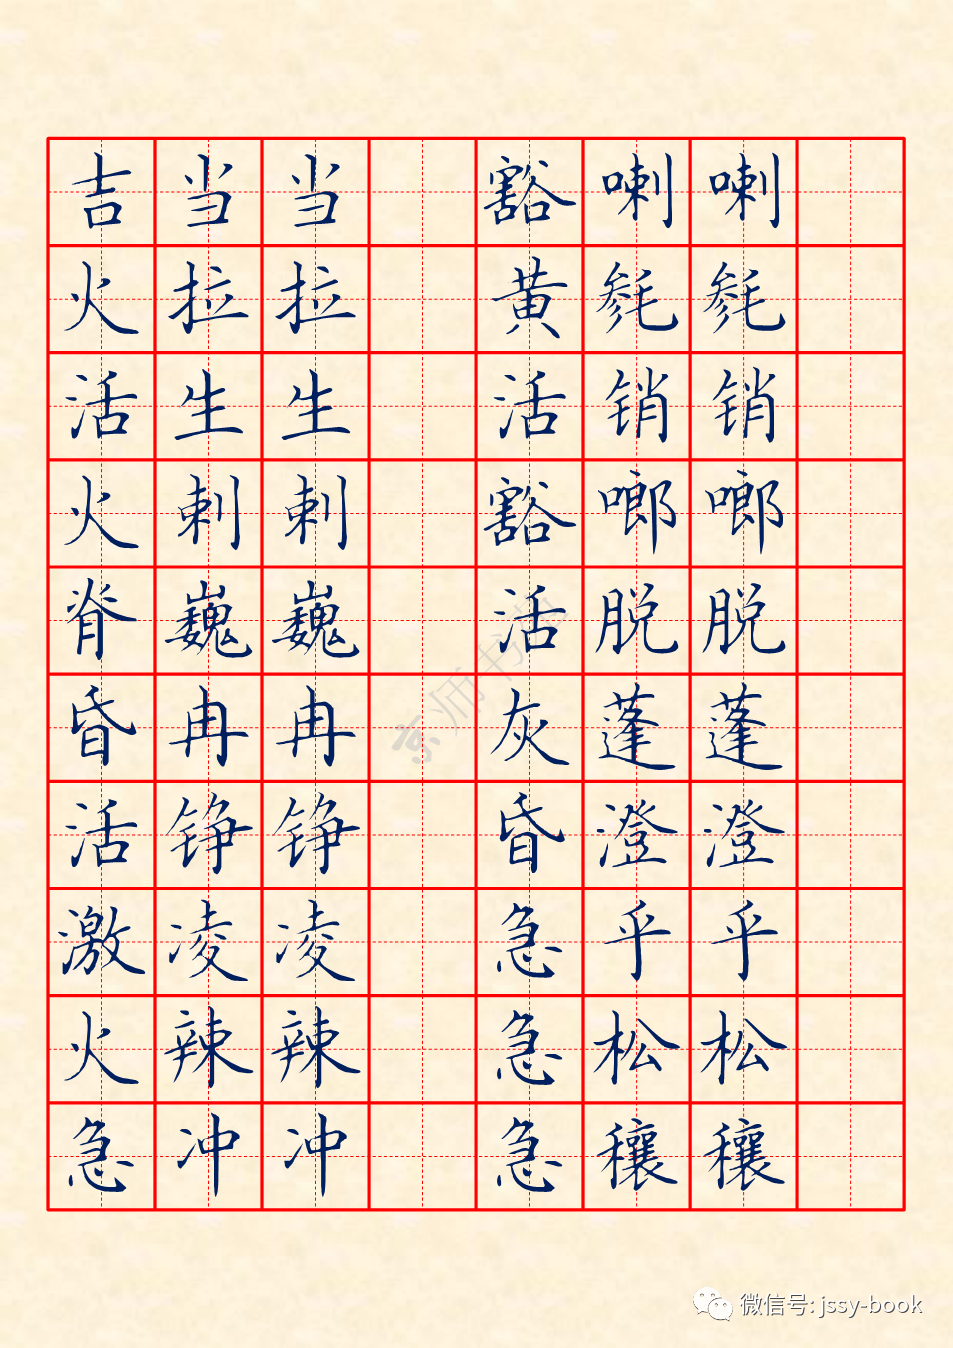 吉当当 豁喇喇
火拉拉 黄毵毵
活生生 活销销
火剌剌 豁啷啷
脊巍巍 活脱脱
昏冉冉 灰蓬蓬
活铮铮 昏澄澄
激凌凌 急乎乎
火辣辣 急松松
急冲冲 急穰穰
京师书法
微信号: jssy-book